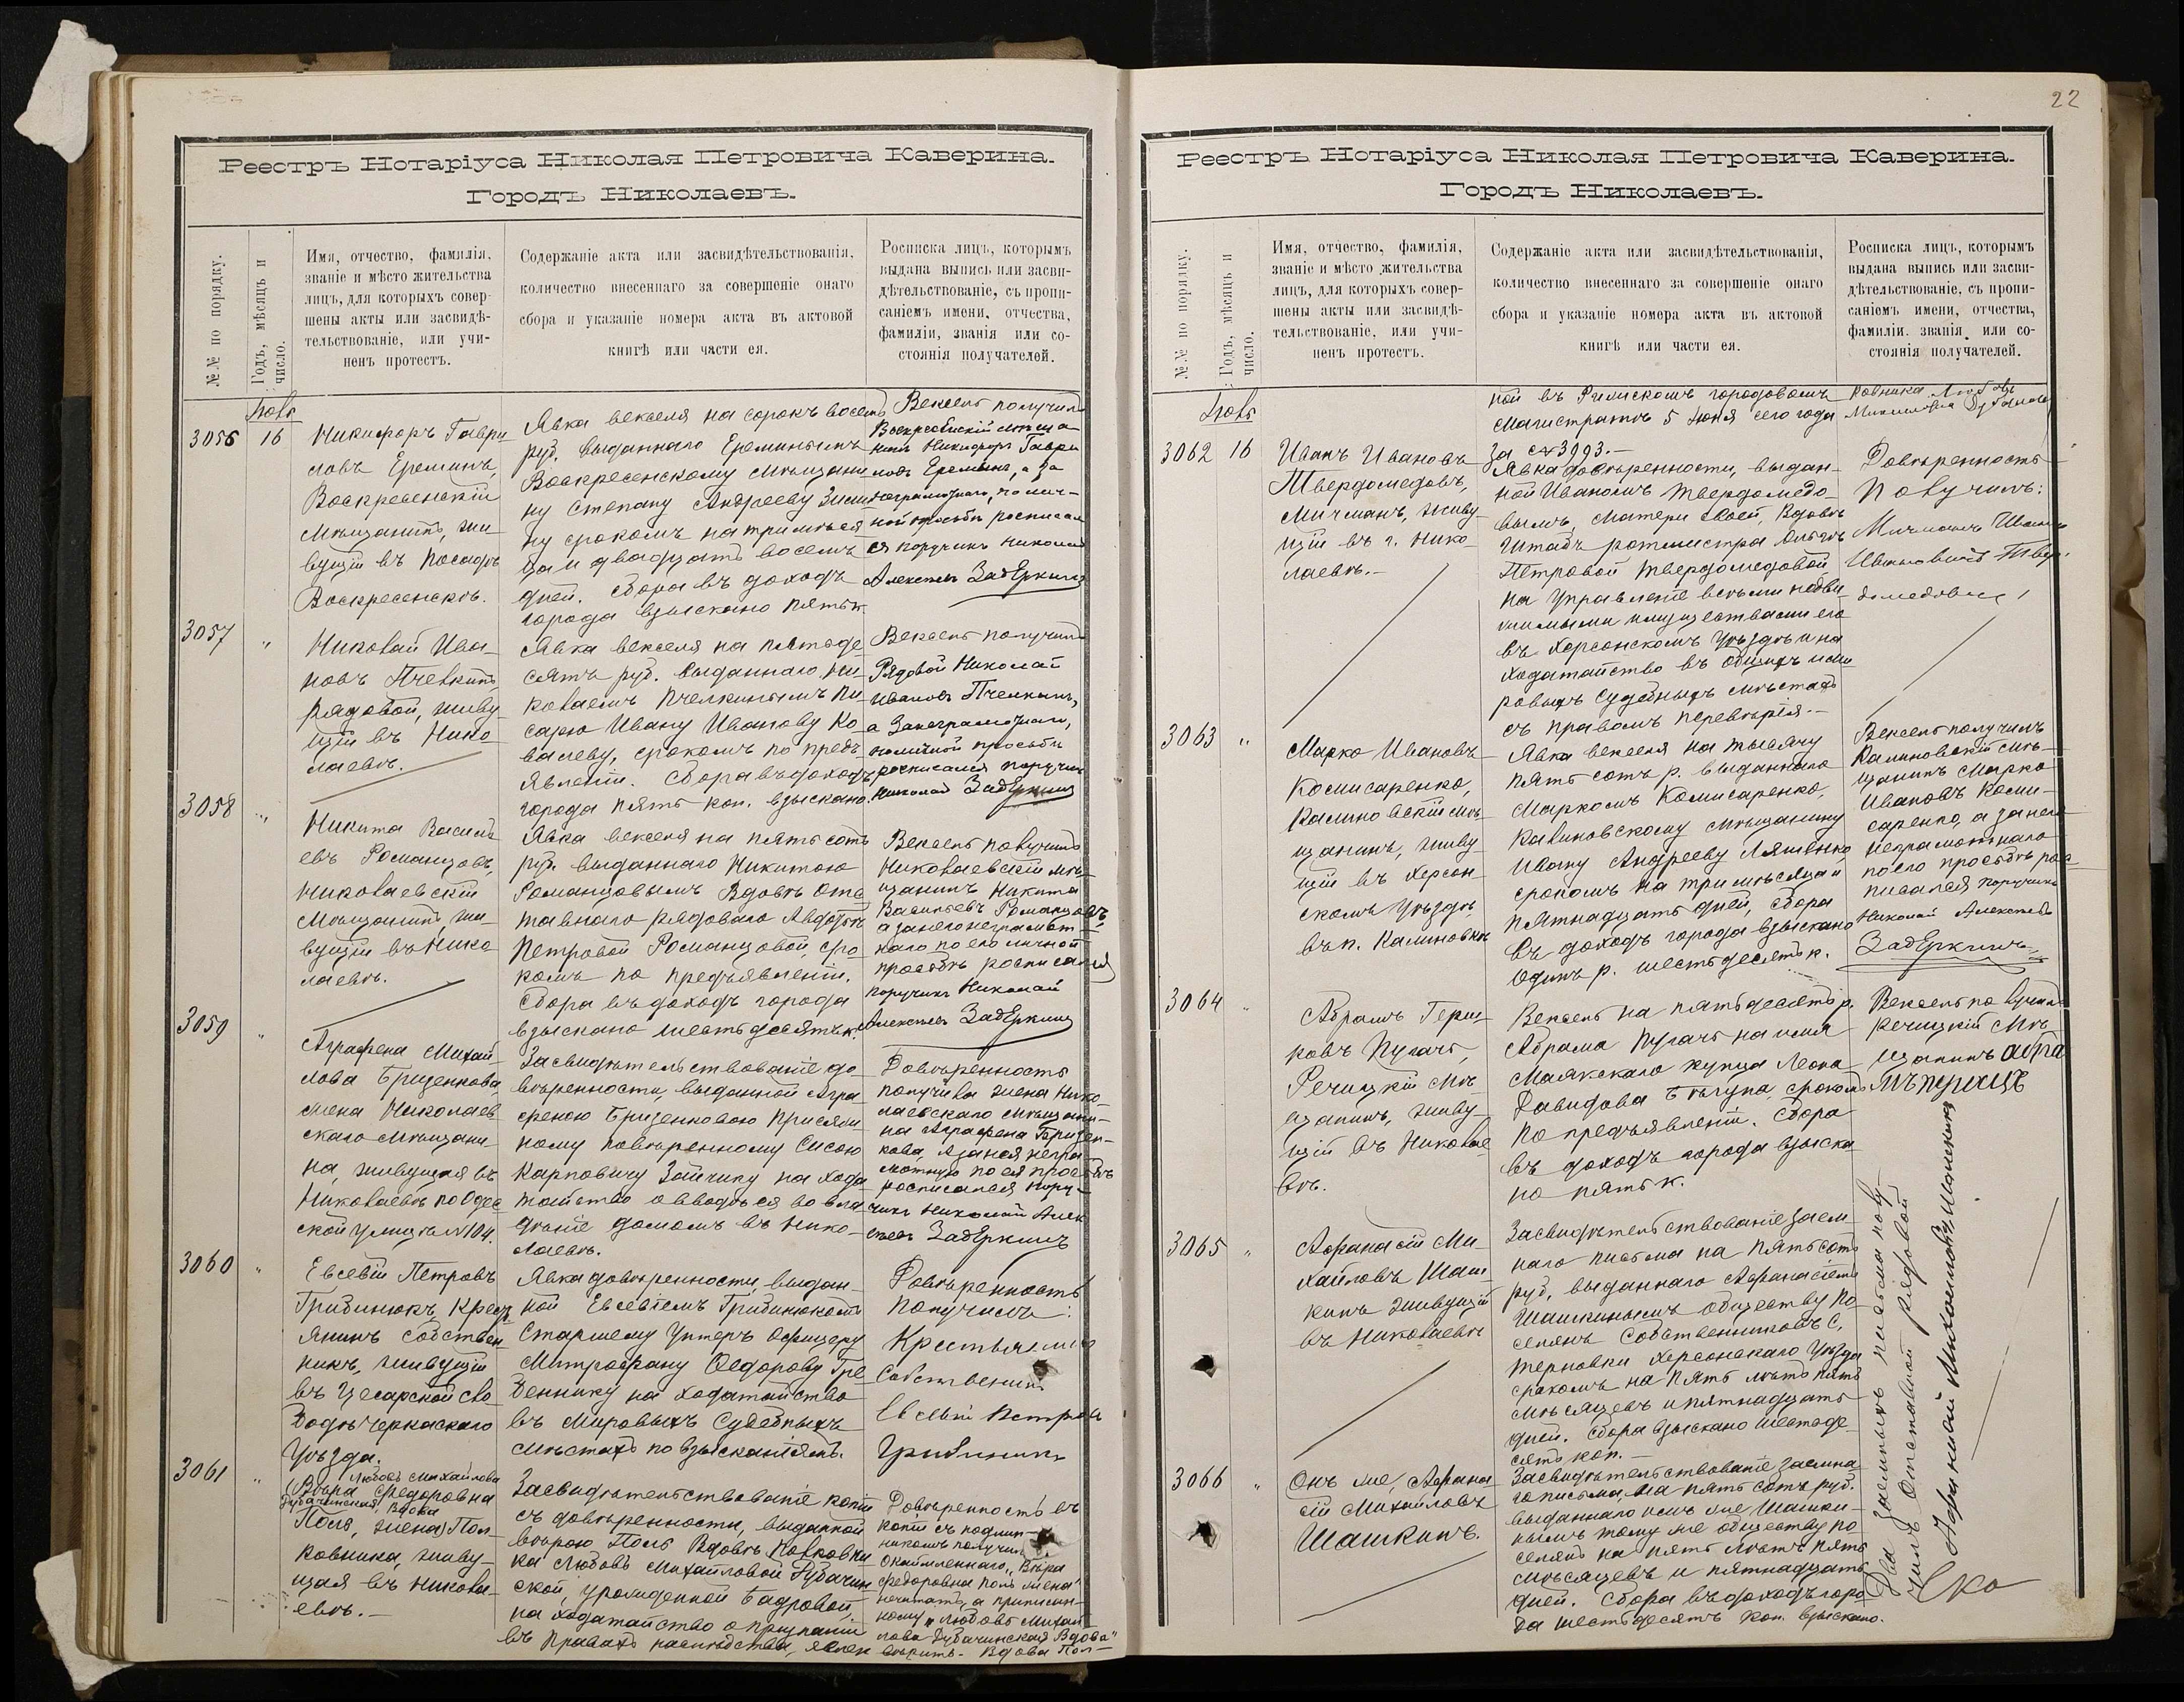 Реестръ Нотаріуса Николая Петровича Каверина.
Городъ Николаевъ.
№№ по порядку.
Годъ, мѣсяцъ и
число.
Имя, отчество, фамилія,
званіе и мѣсто жительства
лицъ, для которыхъ совер-
шены акты или засвидѣ-
тельствованіе, или учи-
ненъ протестъ.
Содержаніе акта или засвидѣтельствованія,
количество внесеннаго за совершеніе онаго
сбора и указаніе номера акта въ актовой
книгѣ или части ея.
Росписка лицъ, которымъ
выдана выпись или засви-
дѣтельствованіе, съ пропи-
саніемъ имени, отчества,
фамиліи, званія или со-
стоянія получателей.
3056 16
Никифоръ Гаври
ловъ Ереминъ,
Воскресенскій
мѣщанинъ, жи-
вущій въ посадѣ
Воскресенскѣ.
Явка векселя на сорокъ восемь
руб. выданнаго Ереминымъ
Воскресенскому мѣщани
ну Степану Андрееву
ну срокомъ на три мѣся
ца и двадцать восемь
дней. Сбора въ доходъ
города взыскано пять к.
Вексель получилъ
Воскресенскій мѣща-
нинъ Никифоръ Гаври
ловъ Ереминъ, а за
неграмотнаго, по лич-
ной просьбѣ росписал
ся поручикъ Николай
Алексѣевъ Задёркинъ
3057 "
Николай Ива-
новъ Пчелкинъ,
рядовой, живу-
щій въ Нико-
лаевѣ.
Явка векселя на пятьде
сятъ руб. выданнаго Ни-
колаемъ Пчелкинымъ пи-
сарю Ивану Иванову Ко
валеву, срокомъ по предъ
явленіи. Сбора въ доходъ
города пять коп. взыскано.
Вексель получилъ
Рядовой Николай
Ивановъ Пчелкинъ,
а за неграмотнаго,
по личной просьбѣ
росписался поручикъ
Николай Задёркинъ
3058 "
Никита Василь
евъ Романцовъ,
Николаевскій
мѣщанинъ, жи-
вущій въ Нико
лаевѣ.
Явка векселя на пять сотъ
руб. выданнаго Никитою
Романцовымъ вдовѣ отс
тавнаго рядоваго Авдотьѣ
Петровой Романцовой, сро
комъ по предъявленіи.
Сбора въ доходъ города
взыскано шесть десятъ к.
Вексель получилъ
Николаевскій мѣ-
щанинъ Никита
Васильевъ Романцовъ,
а за него неграмот-
наго по его личной
просьбѣ росписался
поручикъ Николай
Алексѣевъ Задёркинъ
3059 "
Аграфена Михай
лова Бриценкова,
жена Николаев
скаго мѣщани-
на, живущая въ
Николаевѣ по Одес
ской улицѣ № 104.
Засвидѣтельствованіе до
вѣренности, выданной Агра
феною Бриценковою присяж
ному повѣренному Сисою
Карповичу Зайчику на хода
тайство о вводѣ ея во вла
дѣніе домомъ въ Нико-
лаевѣ.
Довѣренность
получила жена Нико-
лаевскаго мѣщани-
на Аграфена Брицен-
кова, а за нея негра
мотную по ея просьбѣ
росписался пору-
чикъ Николай Алек
сѣевъ Задёркинъ
3060 "
Евсевій Петровъ
Грибинюкъ, крест
янинъ собствен
никъ, живущій
въ Цесарской сло
бодѣ Черкаскаго
уѣзда.
Явка довѣренности, выдан-
ной Евсевіемъ Грибинюкомъ
Старшему унтеръ офицеру
Митрофану Федорову Гре
беннику на ходатайство
въ мировыхъ судебныхъ
мѣстахъ по взысканіямъ.
Довѣренность
получилъ:
Крестьянинъ
Собственникъ
Евсѣй Петровъ
Грибинюкъ
3061 "
Любовь Михайлова
(Вѣра Федоровна
Дубачинская, вдова
Поль, жена) Пол-
ковника, живу-
щая въ Никола-
евѣ.
Засвидѣтельствованіе копіи
съ довѣренности, выданной
вѣрою Поль вдовѣ полковни
ка Любовь Михайловой Дубачин
ской, урожденной Бадровой,
на ходатайство о признаніи
въ правахъ наслѣдства, явлен
Довѣренность въ
копіи съ подлин-
никомъ получила
Окаймленнаго „Вѣра
Федоровна Поль жена"
нечитать, а приписан-
ному „Любовь Михай
лова Дубачинская вдова"
вѣрить. Вдова Пол-
22
Реестръ Нотаріуса Николая Петровича Каверина.
Городъ Николаевъ.
№№ по порядку.
Годъ, мѣсяцъ и
число.
Имя, отчество, фамилія,
званіе и мѣсто жительства
лицъ, для которыхъ совер-
шены акты или засвидѣ-
тельствованіе, или учи-
ненъ протестъ.
Содержаніе акта или засвидѣтельствованія,
количество внесеннаго за совершеніе онаго
сбора и указаніе номера акта въ актовой
книгѣ или части ея.
Росписка лицъ, которымъ
выдана выпись или засви-
дѣтельствованіе, съ пропи-
саніемъ имени, отчества,
фамиліи, званія или со-
стоянія получателей.
ной въ Рижскомъ городовомъ
магистратѣ 5 Іюня сего года
за № 3993.—
ковника Любовь
3062 16
Иванъ Ивановъ
Твердомедовъ,
Мичманъ, живу
щій въ г. Нико-
лаевѣ.—
Явка довѣренности, выдан-
ной Иваномъ Твердомедо-
вымъ, матери своей, вдовѣ
Штабъ ротмистра Ольгѣ
Петровой Твердомедовой
на управленіе всѣми недви-
жимыми имуществами его
въ Херсонскомъ уѣздѣ и на
ходатайство въ общихъ и ми
ровыхъ судебныхъ мѣстахъ
съ правомъ передовѣрія.—
Довѣренность
получилъ:
Мичманъ Иванъ
Ивановичъ Твер-
домедовъ
3063 "
Марко Ивановъ
Комисаренко,
Калиновскій мѣ-
щанинъ, живу-
щій въ Херсон-
скомъ уѣздѣ
въ п. Калиновкѣ
Явка векселя на тысячу
пять сотъ р. выданнаго
Маркомъ Комисаренко,
Калиновскому мѣщанину
Ивану Андрееву Ляшенко,
срокомъ на три мѣсяца и
пятнадцать дней, сбора
въ доходъ города взыскано
одинъ р. шестьдесятъ к.
Вексель получилъ
Калиновскій мѣ-
щанинъ Марко
Ивановъ Коми-
саренко, а за него
неграмотнаго
по его просьбѣ рос-
писался поручикъ
Николай Алексѣевъ
Задёркинъ
3064 "
Абрамъ Герш-
ковъ Пугачъ,
Речицкій мѣ-
щанинъ, живу-
щій въ Николае
вѣ.
Вексель на пятьдесятъ р.
Абрама Пугачъ на имя
Маякскаго купца Леона
Давидова Бѣгуна, срокомъ
по предъявленіи. Сбора
въ доходъ города взыска
но пять к.
Вексель получилъ
Речицкій мѣ-
щанинъ абра
3065 "
Афанасій Ми-
хайловъ Шаш-
кинъ живущій
въ Николаевѣ
Засвидѣтельствованіе заем-
наго письма на пять сотъ
руб. выданнаго Афанасіемъ
Шашкинымъ обществу по
селянъ собственниковъ с.
Терновки Херсонскаго уѣзда
срокомъ на пять лѣтъ пять
мѣсяцевъ и пятнадцать
дней. Сбора взыскано шестьде
сятъ коп.—
3066 "
Онъ же, Афана
сій Михайловъ
Шашкинъ.
Засвидѣтельствованіе заемна
го письма, на пять сотъ руб.
выданнаго имъ же Шашки-
нымъ тому же обществу по
селянъ на пять лѣтъ пять
мѣсяцевъ и пятнадцать
дней. Сбора въ доходъ горо
да шестьдесятъ коп. взыскано.
Два заемныхъ письма полу
чилъ Отставной рядовой